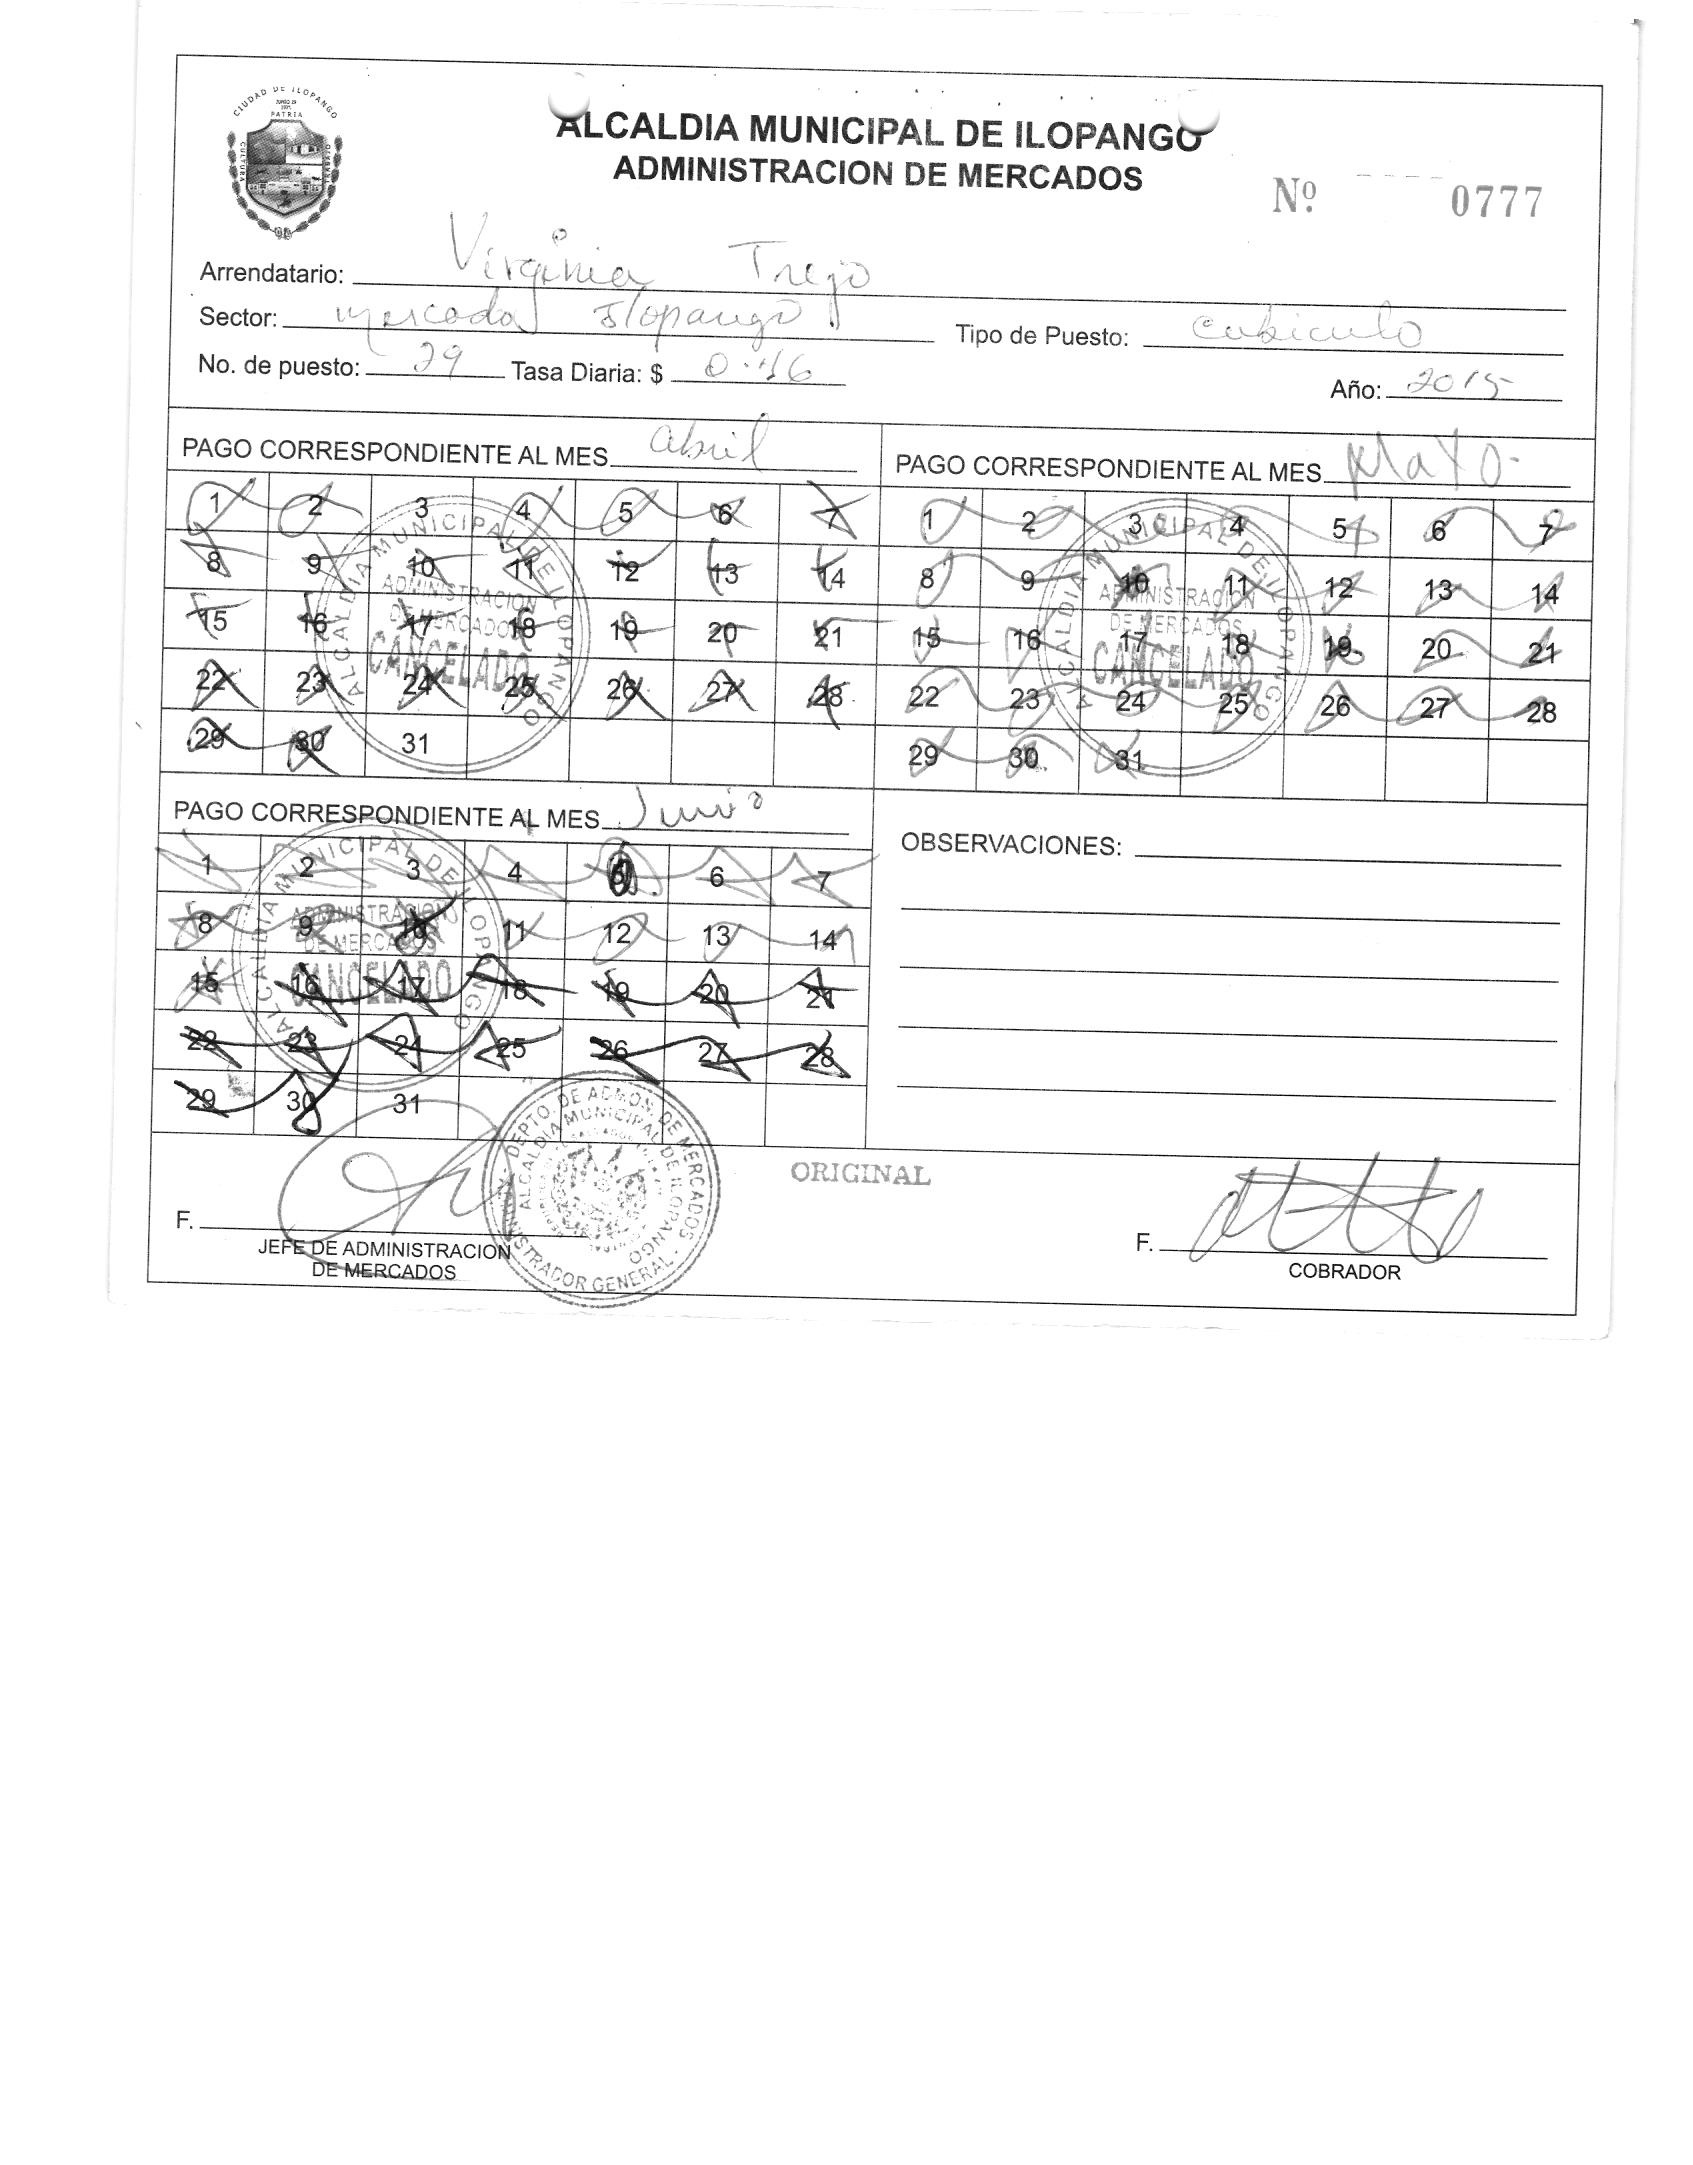 CIUDAD DE ILOPANGO
PATRIA
CULTURA
ALCALDIA MUNICIPAL DE ILOPANGO
ADMINISTRACION DE MERCADOS
Nº 0777
Arrendatario: Virginia Trejo
Sector: mercado Ilopango Tipo de Puesto: cubiculo
No. de puesto: 29 Tasa Diaria: $ 0.46 Año: 2015
PAGO CORRESPONDIENTE AL MES abril
1 2 3 4 5 6 7
8 9 10 11 12 13 14
15 16 17 18 19 20 21
22 23 24 25 26 27 28
29 30 31
ALCALDIA MUNICIPAL DE ILOPANGO
ADMINISTRACION
DE MERCADOS
CANCELADO
PAGO CORRESPONDIENTE AL MES MAYO
1 2 3 4 5 6 7
8 9 10 11 12 13 14
15 16 17 18 19 20 21
22 23 24 25 26 27 28
29 30 31
ALCALDIA MUNICIPAL DE ILOPANGO
ADMINISTRACION
DE MERCADOS
CANCELADO
PAGO CORRESPONDIENTE AL MES Junio
1 2 3 4 5 6 7
8 9 10 11 12 13 14
15 16 17 18 19 20 21
22 23 24 25 26 27 28
29 30 31
ALCALDIA MUNICIPAL DE ILOPANGO
ADMINISTRACION
DE MERCADOS
CANCELADO
OBSERVACIONES:
DEPTO. DE ADMON. DE MERCADOS
ALCALDIA MUNICIPAL DE ILOPANGO
ADMINISTRADOR GENERAL
ORIGINAL
F.
JEFE DE ADMINISTRACION
DE MERCADOS
F.
COBRADOR